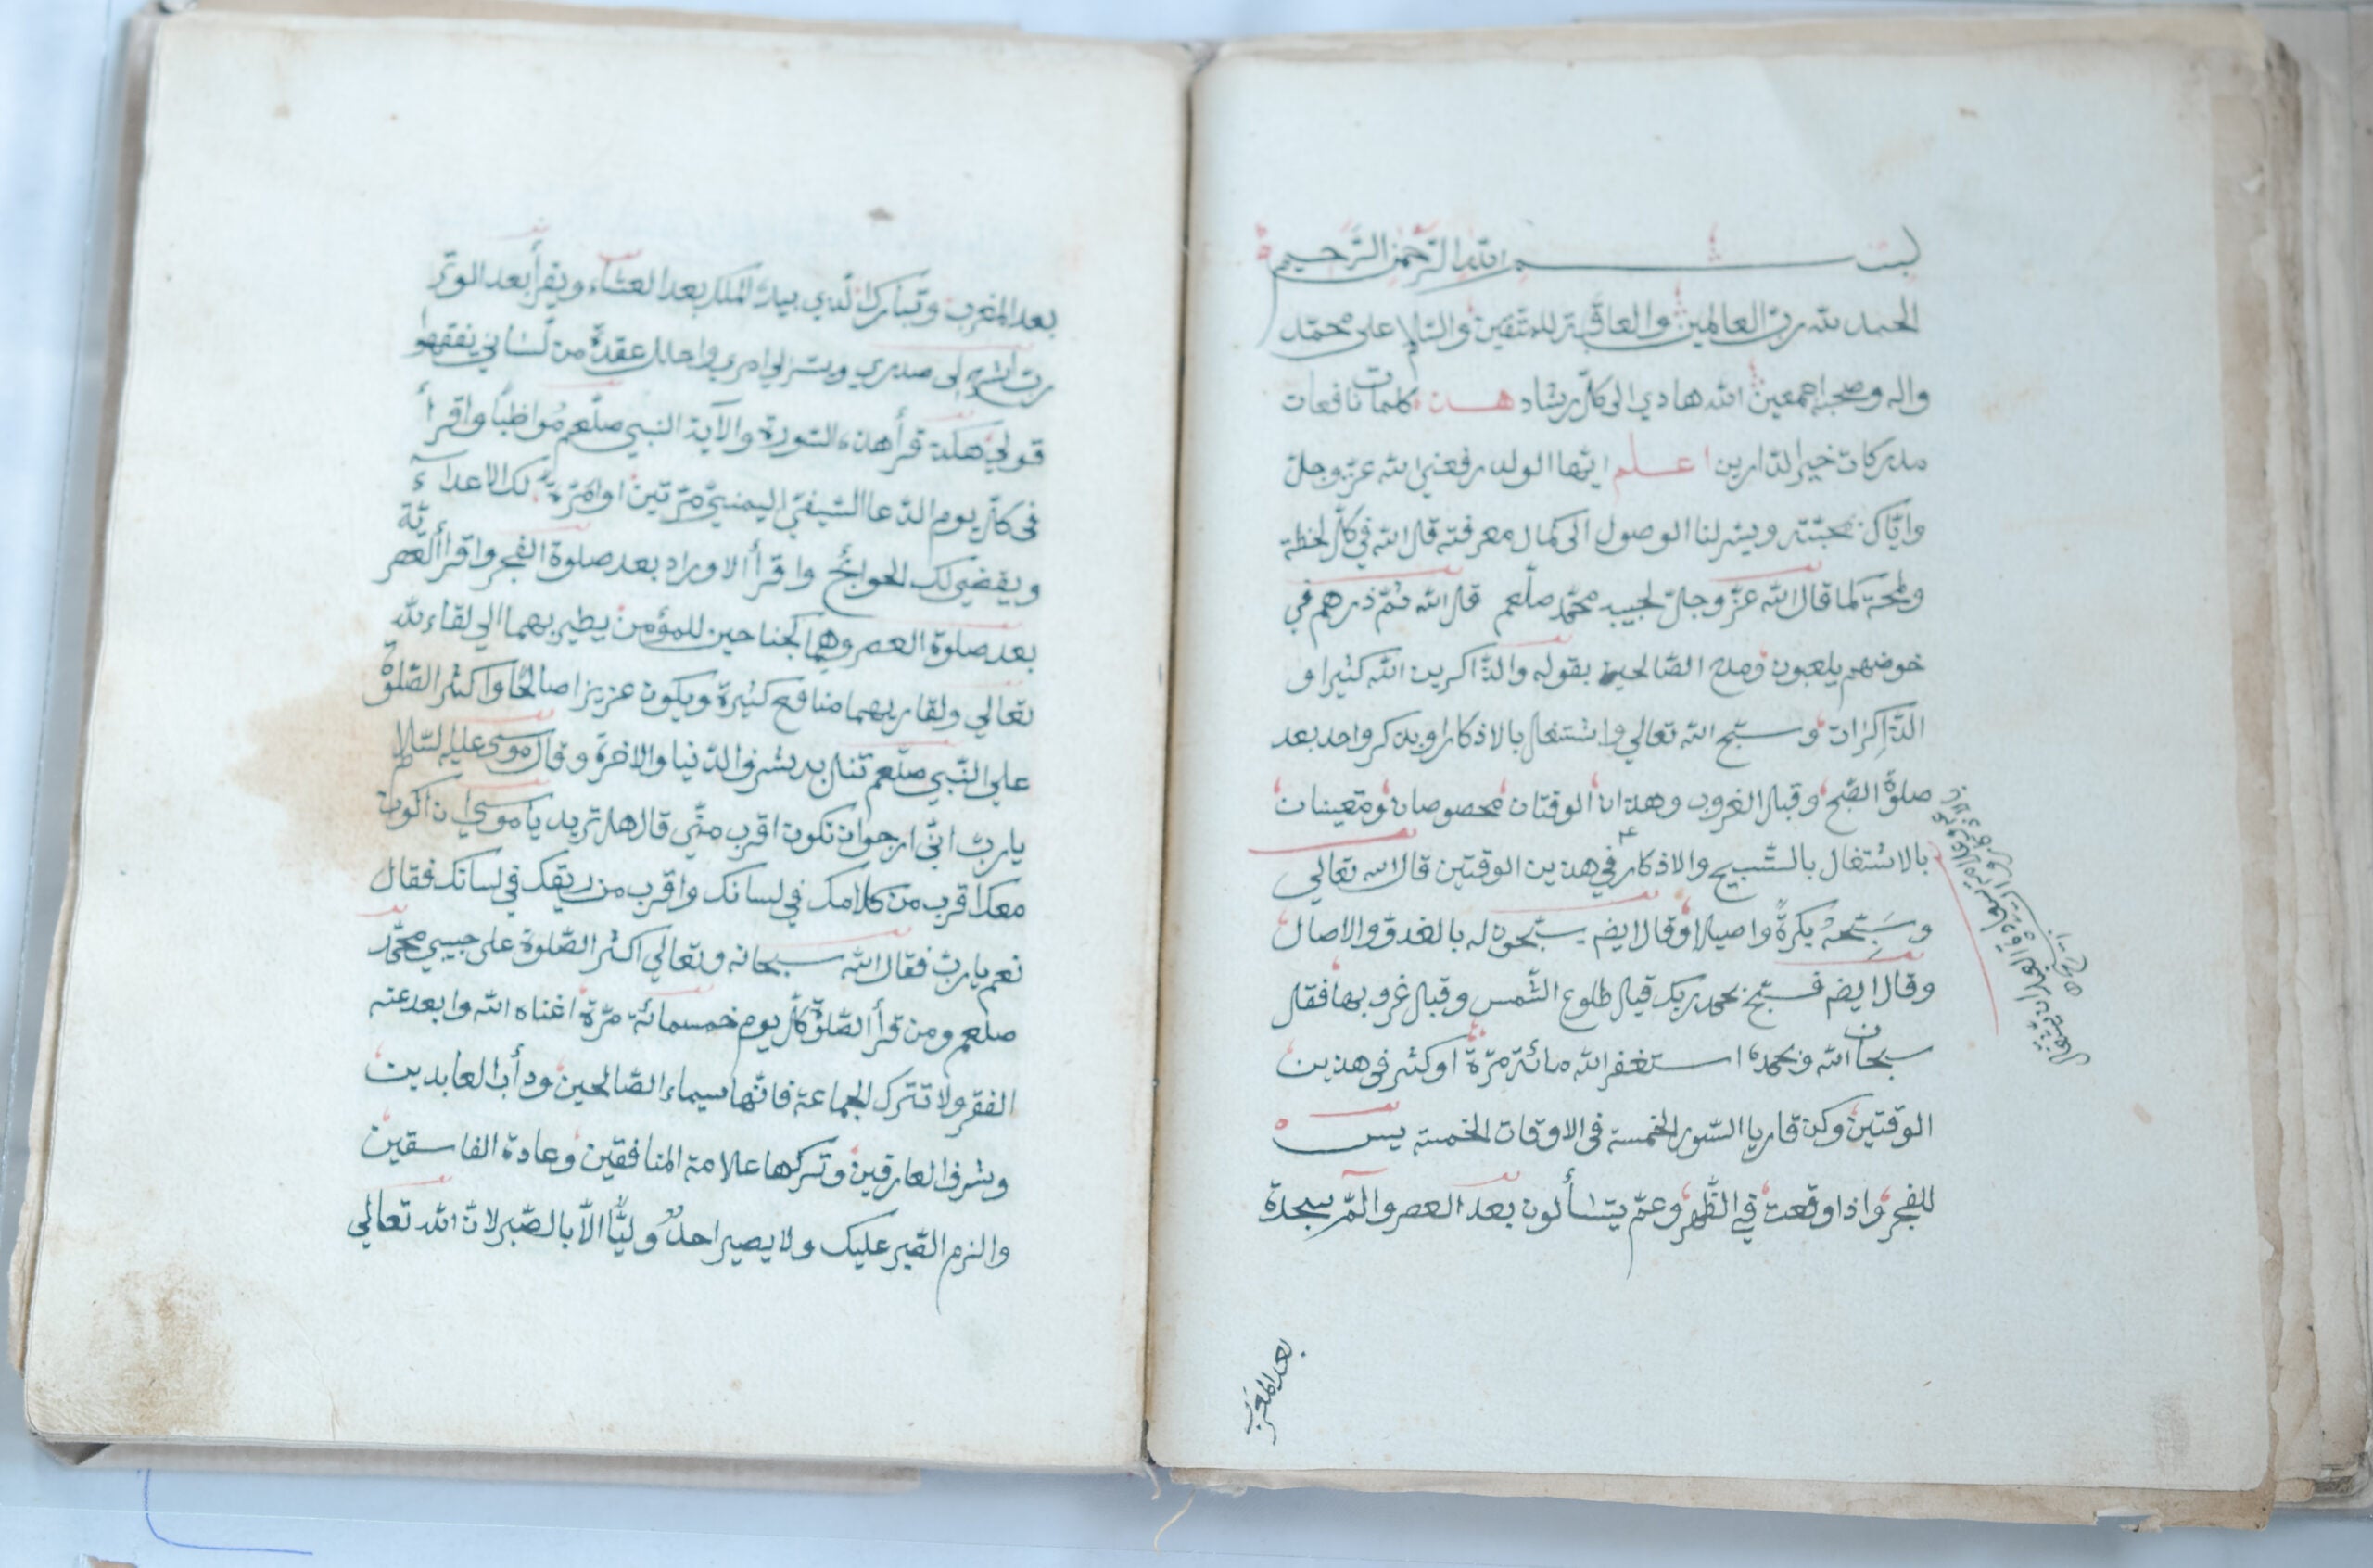 بسم الله الرحمن الرحيم
الحمد لله رب العالمين والعاقبة للمتقين والسلام على محمد
واله وصحبه اجمعين الله هادي الى كل رشاد هذه كلمات نافعات
مدركات خير الدارين اعلم ايها الولد رفعني الله عز وجل
واياك بمحبته ويسر لنا الوصول الى كمال معرفته قال الله في كل لحظة
ولمحة كما قال الله عز وجل لحبيبه محمد صلعم قل الله ثم ذرهم في
خوضهم يلعبون ومدح الصالحين بقوله والذاكرين الله كثيرا و
الذاكرات وسبح الله تعالي واشتغل بالاذكار او بذكر واحد بعد
صلوة الصبح وقبل الغروب وهذان الوقتان مخصوصان ومتعينان
بالاشتغال بالتسبيح والاذكار في هذين الوقتين قال الله تعالي
وسَبِّحْهُ بكرةً واصيلا وقال ايضم يسبحون له بالغدو والاصال
وقال ايضم فسبح بحمد ربك قبل طلوع الشمس وقبل غروبها فقل
سبحان الله وبحمده استغفر الله مائة مرة او كثر في هذين
الوقتين وكن قاريا السور الخمسة في الاوقات الخمسة يس
للفجر واذا وقعت في الظهر وعم يتسألون بعد العصر والم سجدة
بعد المغرب
بعد المغرب وتبارك الذي بيده الملك بعد العشاء ويقرأ بعد الوتر
رب اشرح لي صدري ويسر لي امري واحلل عقدة من لساني يفقهوا
قولي هكذا قرأ هذه السورة والآية النبي صلعم مُواظبًا واقرأ
في كل يوم الدعا السيفي اليمني مرتين او مرة لك الاعداء
ويقضي لك الحوائج واقرأ الاوراد بعد صلوة الفجر واقرأ العصرية
بعد صلوة العصر وهما كجناحين للمؤمن يطير بهما الي لقاء الله
تعالي ولقاريهما منافع كثيرة ويكون عزيزا صالحًا واكثر الصلوة
علي النبي صلعم تنل به شرف الدنيا والاخرة وقال موسى عليه السلام
يا رب اني ارجو ان نكون اقرب مني قال هل تريد يا موسى ان اكون
معك اقرب من كلامك في لسانك واقرب من ريقك في لسانك فقال
نعم يا رب فقال الله سبحانه وتعالي اكثر الصلوة على حبيبي محمد
صلعم ومن قرأ الصلوة كل يوم خمسمائة مرة اغناه الله وابعد عنه
الفقر ولا تترك الجماعة فانها سيماء الصالحين ودأب العابدين
وشرف العارفين وتركها علامة المنافقين وعادة الفاسقين
والزم الصبر عليك ولا يصير احدٌ وليًّا الا بالصبر لان الله تعالي